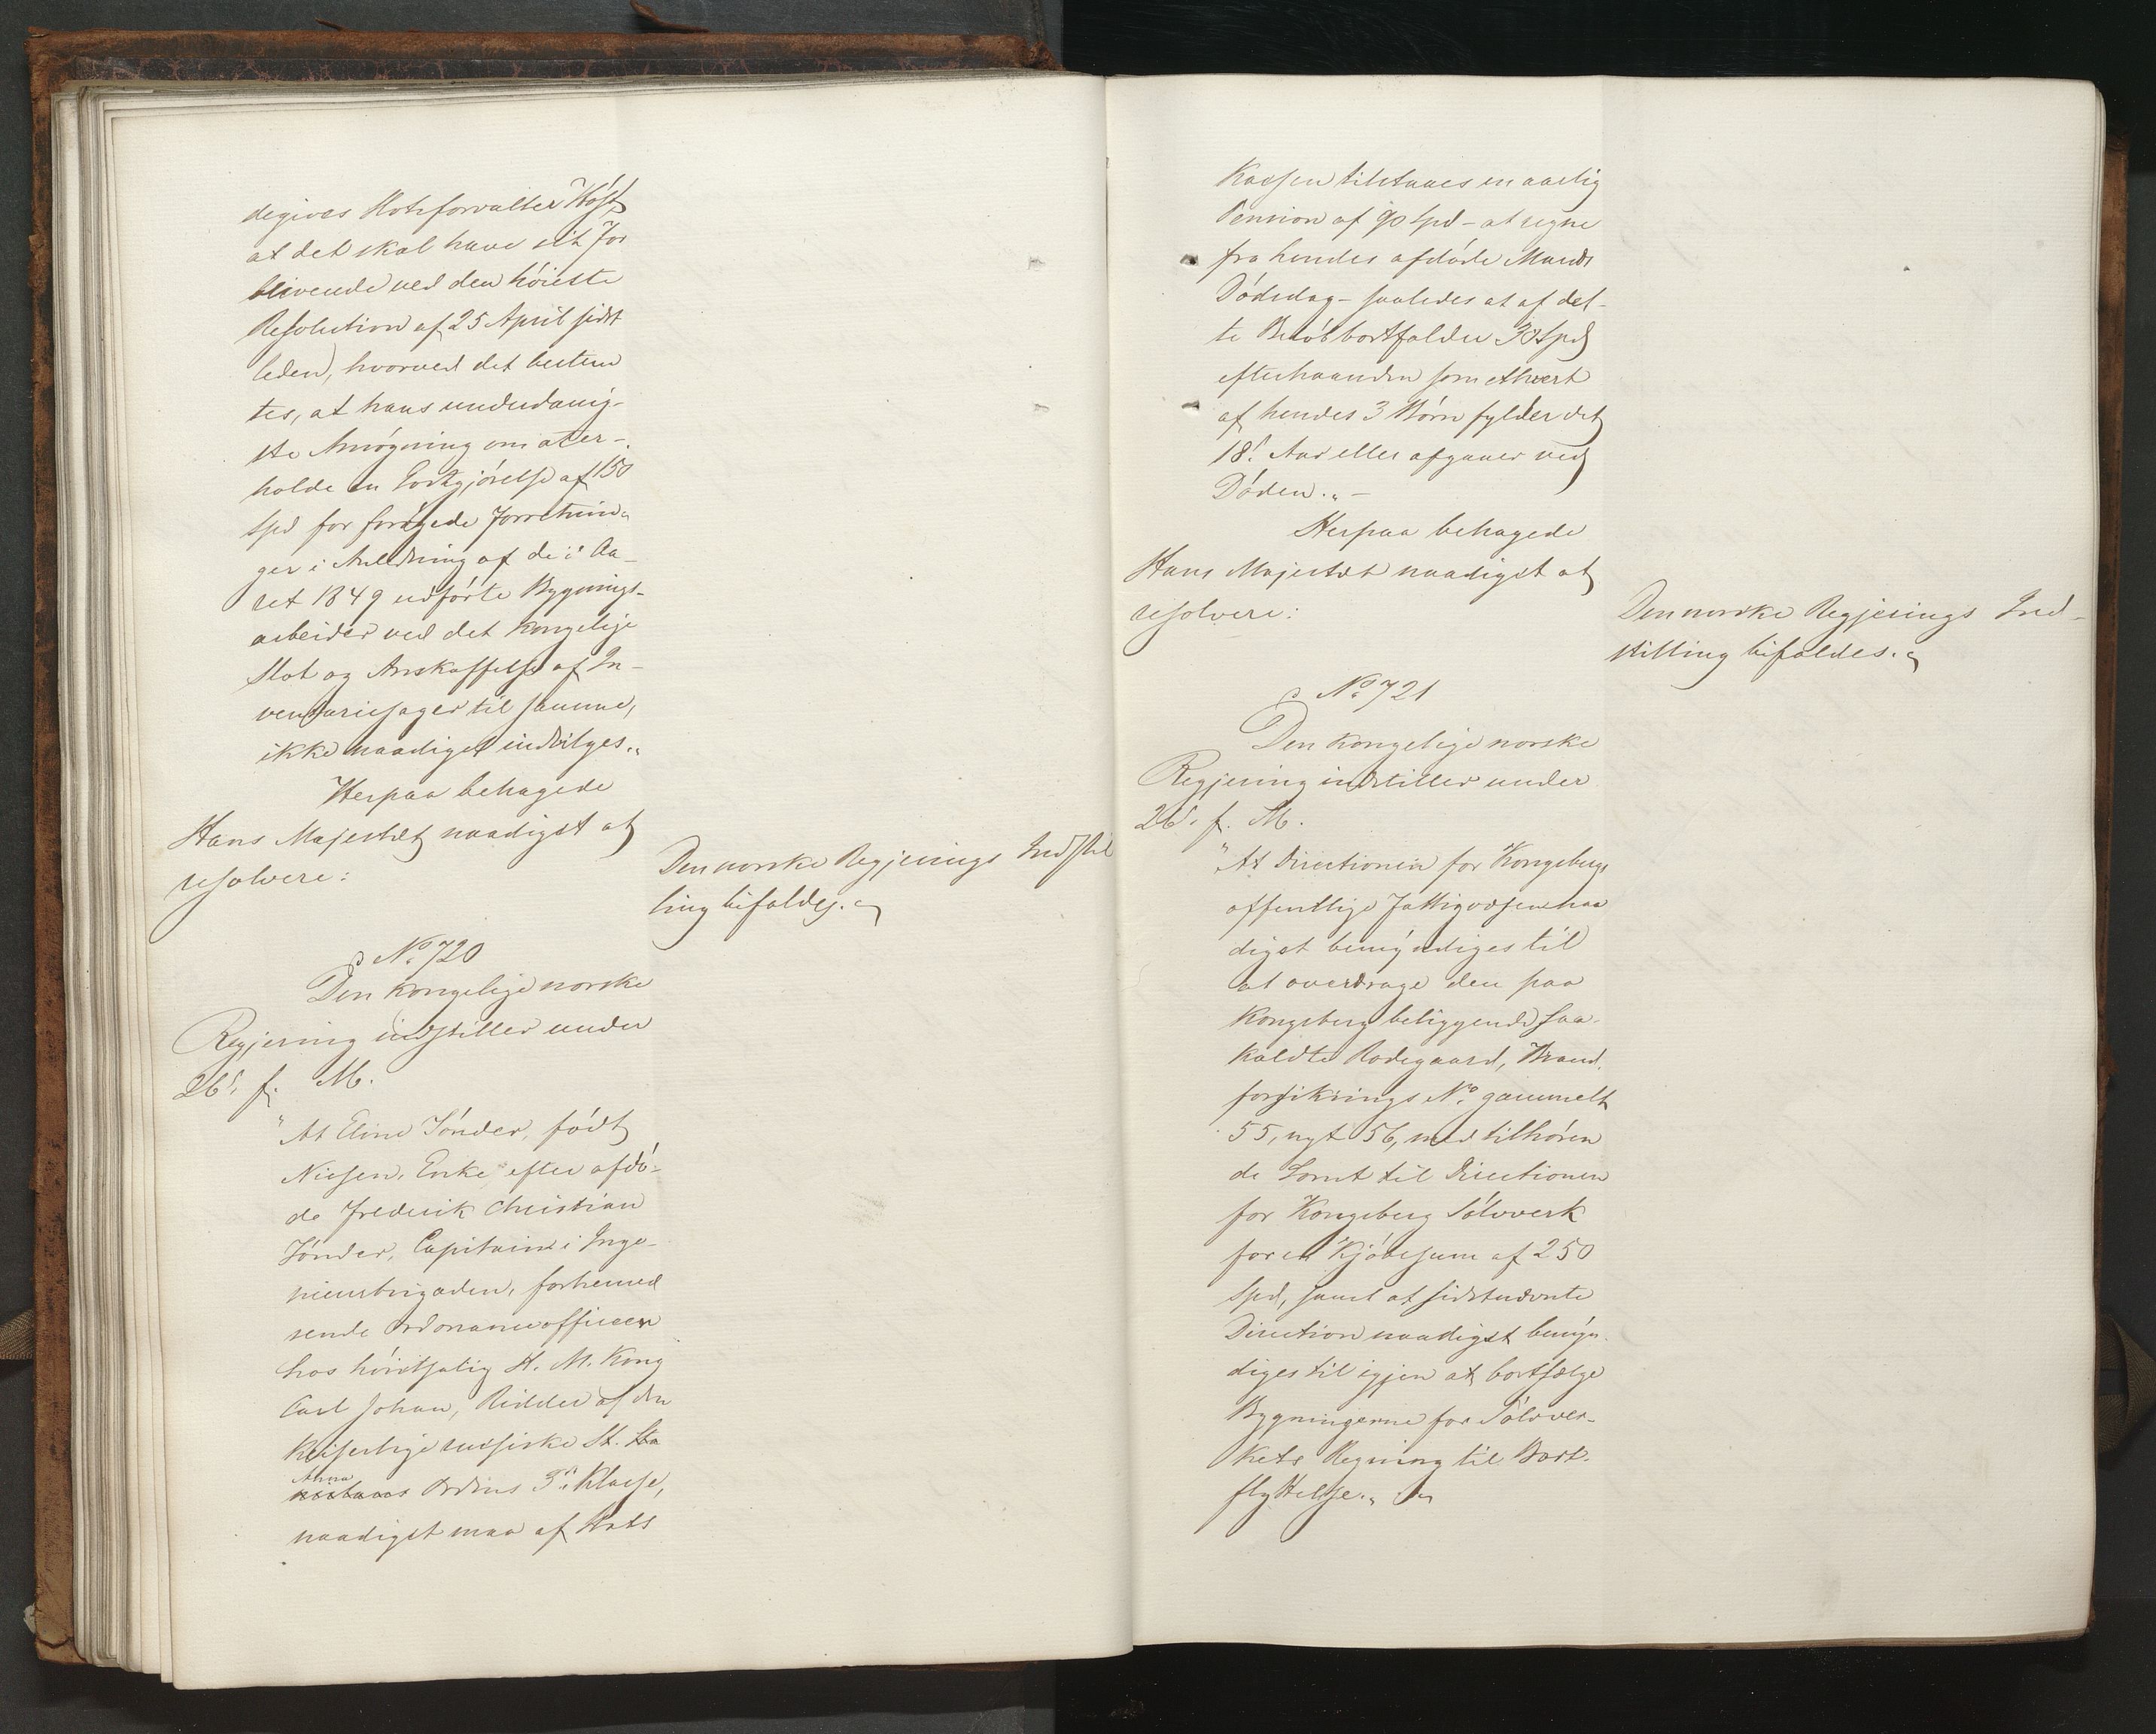 degives Slotsforvalter Høst,
at det skal have sit For
blivende ved den höieste
Resolution af 25 April sidst
leden, hvorved det bestem
tes, at hans underdanig-
ste Ansögning om at er-
holde en Godtgjörelse af 150
Spd for forögede Forretnin-
ger i Anledning af de i Aa-
ret 1849 udförte Bygnings-
arbeider ved det kongelige
Slot og Anskaffelse af In-
ventariesager til samme,
ikke naadigst indvilges.„
Herpaa behagede
Hans Majestæt naadigst at
resolvere:
Den norske Regjerings Indstil
ling bifaldes.
No. 720
Den kongelige norske
Regjering indstiller under
26d. f. M.
"At Eline Sönder, födt
Nielsen, Enke efter afdö-
de Frederik Christian
Sönder, Capitaine i Inge-
nieurbrigaden, forhenvæ
rende Ordonanceofficeer
hos höistsalig H. M. Kong
Carl Johan, Ridder af den
Keiserlige russiske St. Sta
Anna
nislaus Ordens 3die Klasse,
naadigst maa af Stats
Kassen tilstaaes en aarlig
Pension af 90 Spd – at regne
fra hendes afdöde Mands
Dödsdag – saaledes at af det-
te Belöb bortfalder 30 Spd
efterhaanden som ethvert
af hendes 3 Börn fylder det
18d. Aar eller afgaaer ved
Döden.„ –
Herpaa behagede
Hans Majestæt naadigst at
resolvere:
Den norske Regjerings Ind-
stilling bifaldes.
No. 721
Den kongelige norske
Regjering indstiller under
26d. f. M.
"At Directionen for Kongsbergs
offentlige Fattigvæsen naa
digst bemyndiges til
at overdrage den paa
Kongsberg beliggende saa-
kaldte Rodegaard, Brand-
forsikrings No. gammelt
55, nyt 56, med tilhören
de Tomt til Directionen
for Kongsberg Sölvverk
for en Kjöbesum af 250
Spd, samt at sidstnævnte
Direction naadigst bemyn-
diges til igjen at bortsælge
Bygningerne for Sölvver-
kets Regning til Bort-
flyttelse.„